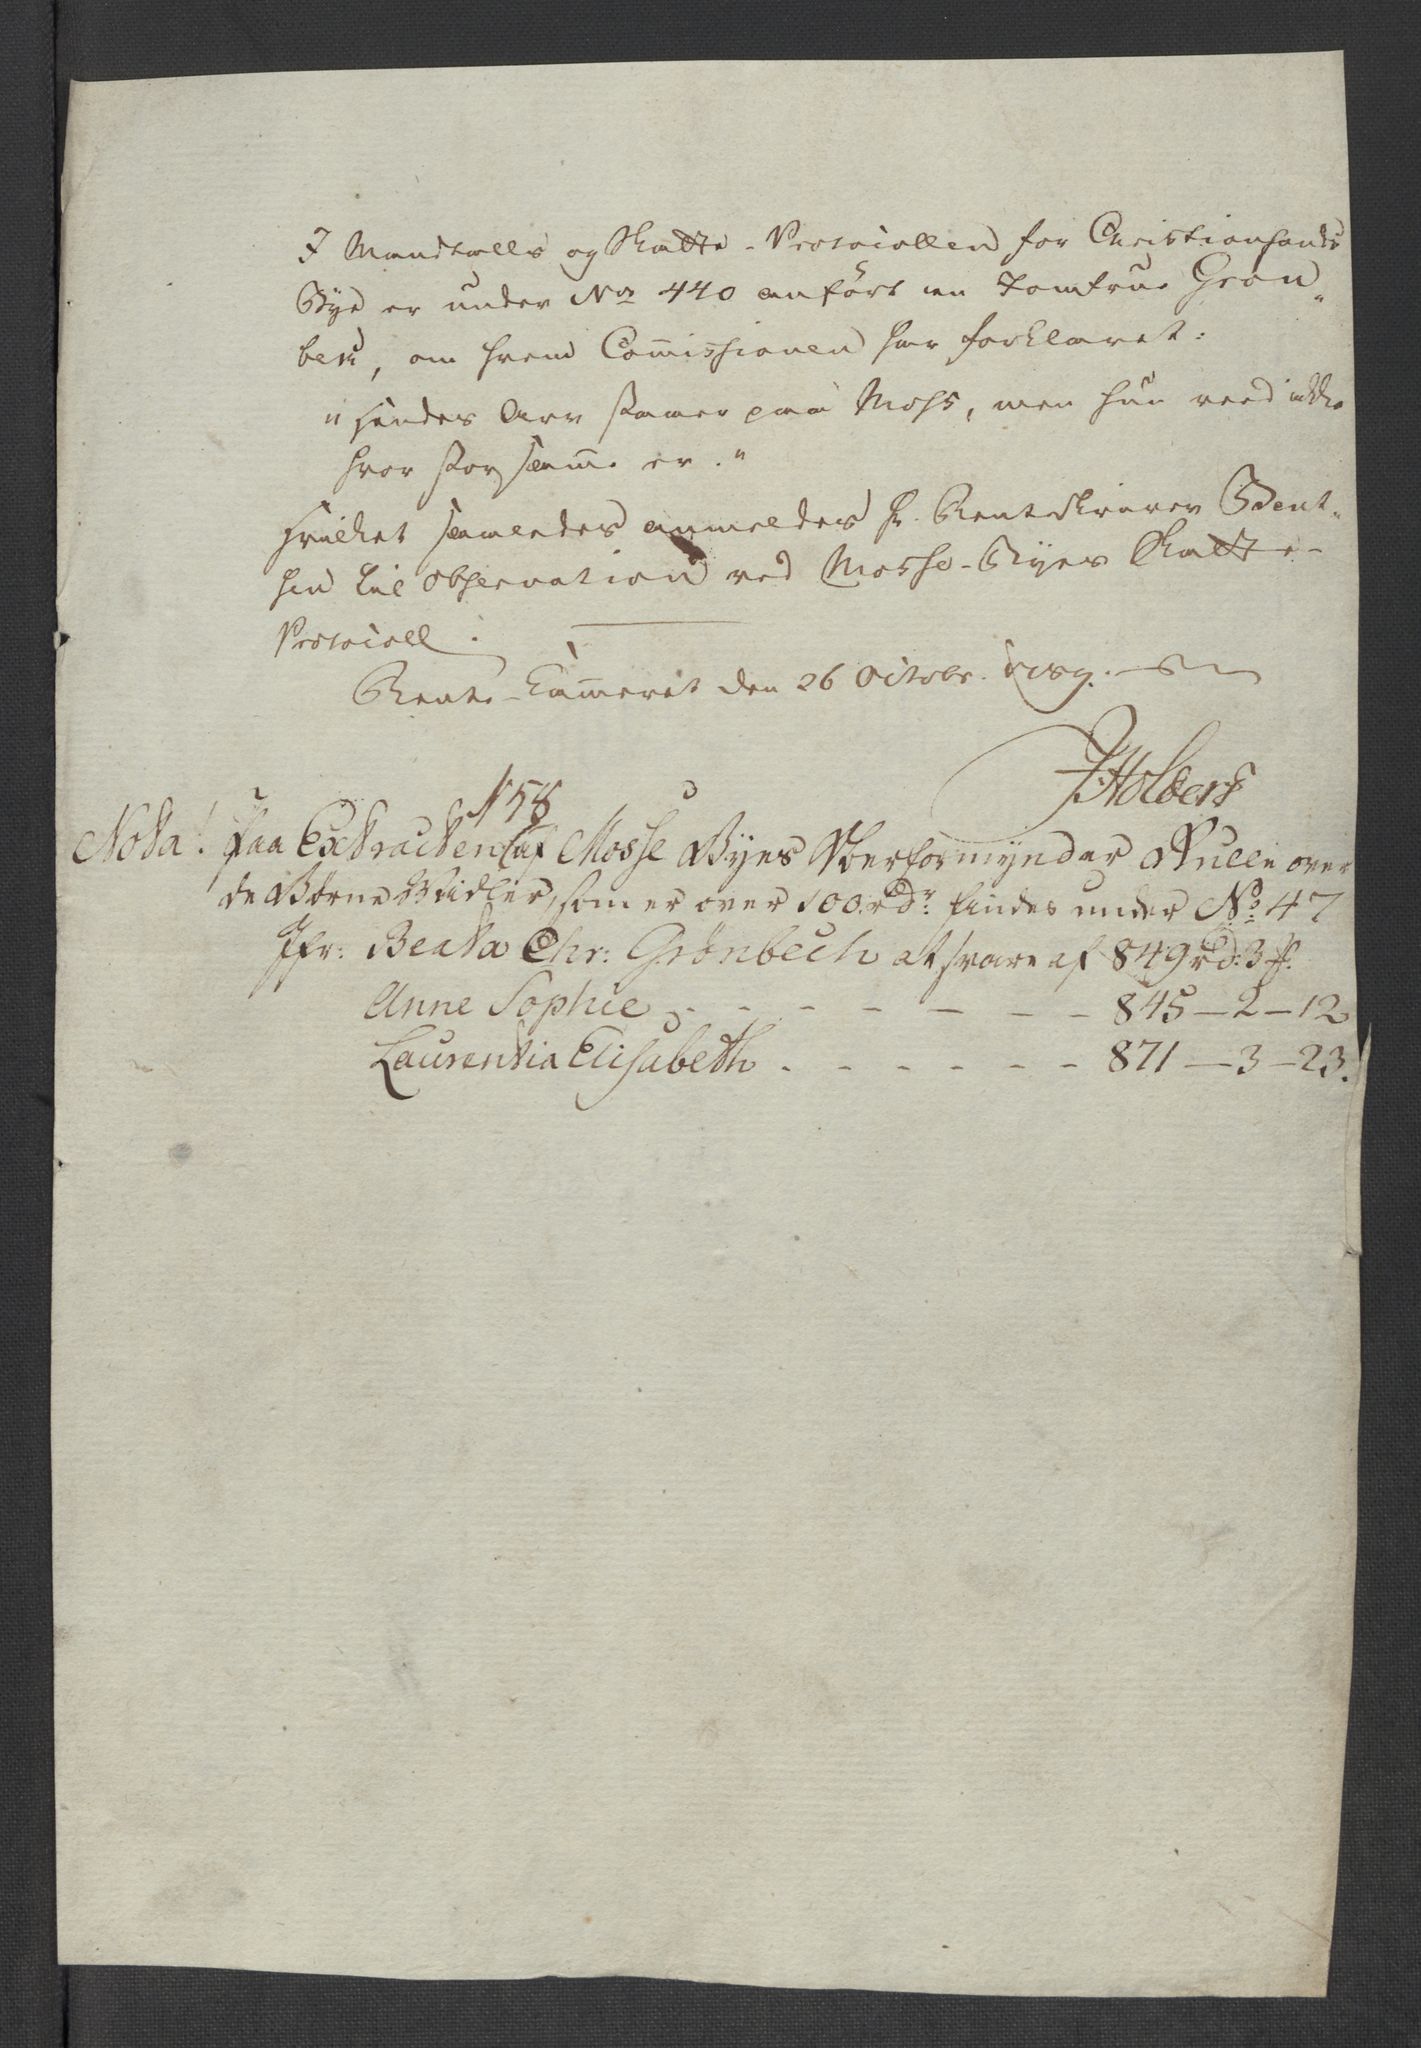 I Mandtalls og Skatte-Protocollen for Christiansands
Bye er under No 440 anført en Jomfrue Gron„
beck, om hvem Commissionen har forklaret:
„Hendes Arv staaer paa Moss, men hun veed ikke
hvor stor samme er."
Hvilket saaledes anmeldes Hr. Rentskriver Bent„
sen til Observation ved Mosse-Byes Skatte-
Protocoll.
Rente-Cammeret den 26 Octobr. 1789.
J Holbers
N 58
Nota! Paa Extracten af Mosse Byes Overformynder Rulle over
de Børne Midler, som er over 100 rdr: findes under No 47
Jfr: Beata Chr: Grönbech at svare af 849 rd: 3 ß.
Anne Sophie - - - - - - - 845 - 2 - 12
Laurentia Elisabeth . - - - - - - 871 - 3 - 23.